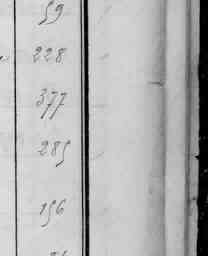 59
228
377
285
156